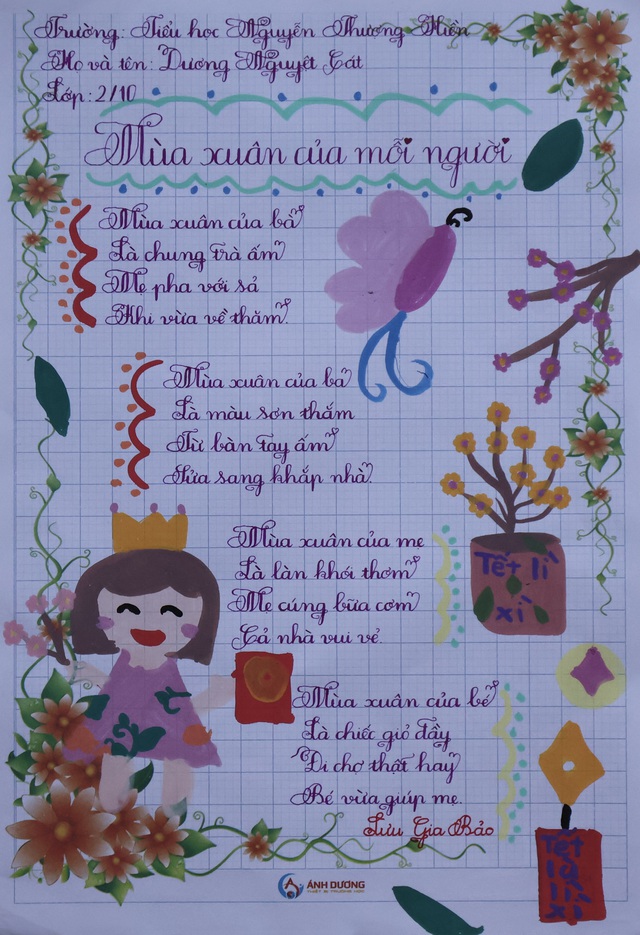 Trường: Tiểu học Nguyễn Thượng Hiền
Họ và tên: Dương Nguyệt Cát
Lớp: 2/10
Mùa xuân của mỗi người
Mùa xuân của bà
Là chung trà ấm
Mẹ pha với sả
Khi vừa về thăm.
Mùa xuân của bố
Là màu sơn thắm
Từ bàn tay ấm
Sửa sang khắp nhà.
Mùa xuân của mẹ
Là làn khói thơm
Mẹ cúng bữa cơm
Cả nhà vui vẻ.
Mùa xuân của bé
Là chiếc giỏ đầy
Đi chợ thật hay
Bé vừa giúp mẹ.
Lưu Gia Bảo
Tết lì
xì
Tết
là
lì
xì
ÁNH DƯƠNG
THIẾT BỊ TRƯỜNG HỌC